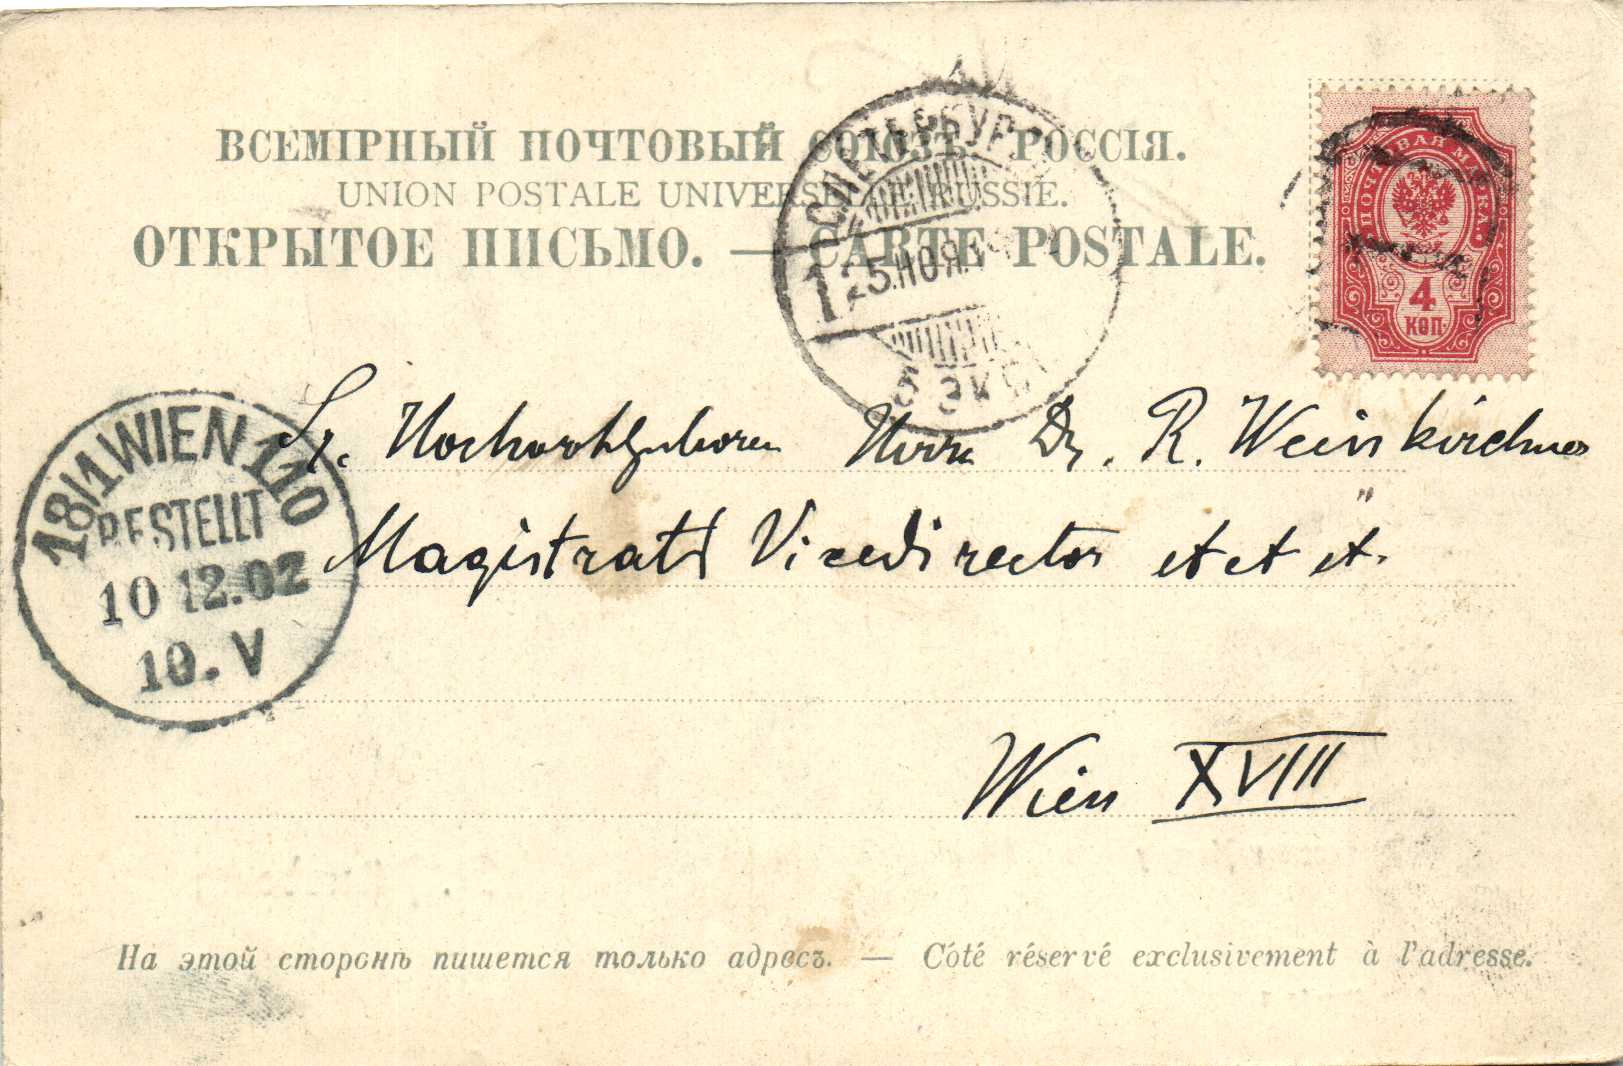 ВСЕМІРНЫЙ ПОЧТОВЫЙ СОЮЗЪ. РОССІЯ.
UNION POSTALE UNIVERSELLE. RUSSIE.
ОТКРЫТОЕ ПИСЬМО. — CARTE POSTALE.
С.ПЕТЕРБУРГ
1
25.НОЯ.
ПОЧТОВАЯ МАРКА.
4
КОП.
18/1 WIEN 110
BESTELLT
10 12.02
10.V
Sr. Hochwohlgeboren Herrn Dr. R. Weiskirchner
Magistrats Vicedirector et et et.
Wien XVIII
На этой сторонѣ пишется только адресъ. — Côté réservé exclusivement à l'adresse.